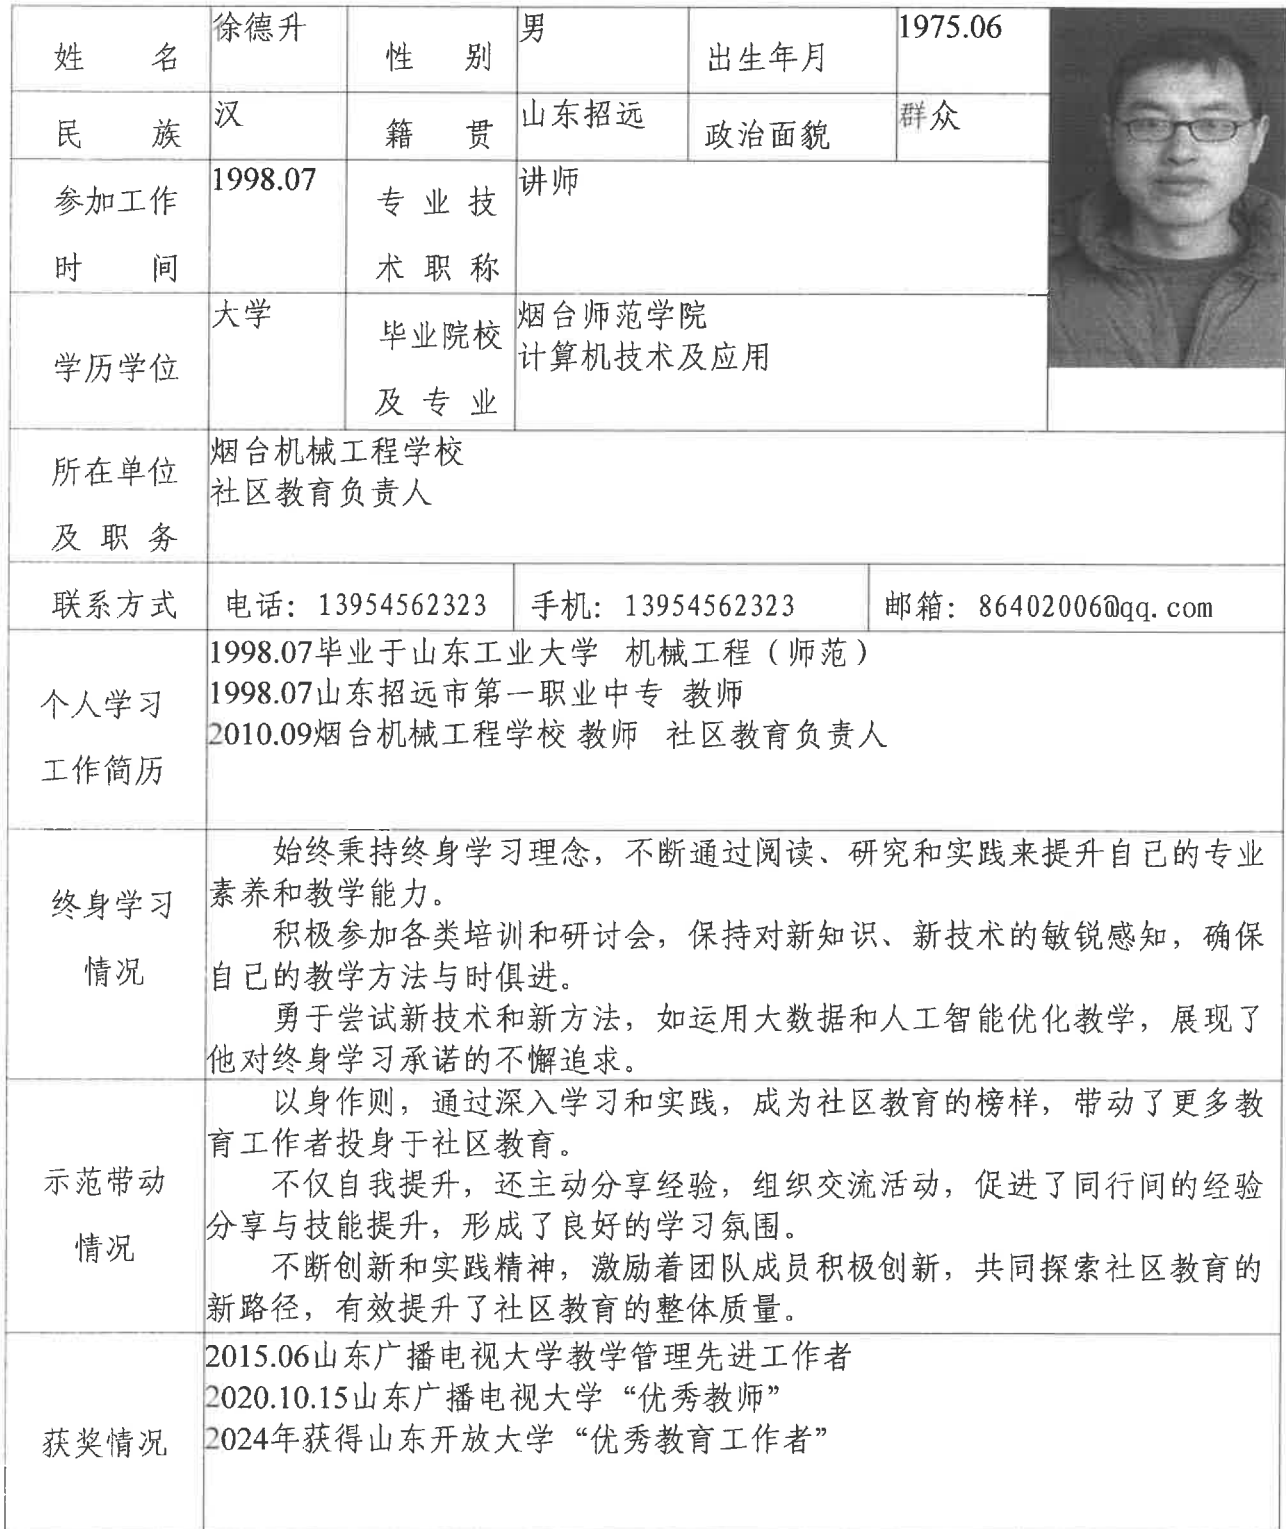 姓 名 徐德升 性 别 男 出生年月 1975.06
民 族 汉 籍 贯 山东招远 政治面貌 群众
参加工作 1998.07 专 业 技 讲师
时 间 术 职 称
学历学位 大学 毕业院校 烟台师范学院
及 专 业 计算机技术及应用
所在单位 烟台机械工程学校
及 职 务 社区教育负责人
联系方式 电话: 13954562323 手机: 13954562323 邮箱: 86402006@qq.com
个人学习
工作简历
1998.07毕业于山东工业大学 机械工程（师范）
1998.07山东招远市第一职业中专 教师
2010.09烟台机械工程学校 教师 社区教育负责人
终身学习
情况
始终秉持终身学习理念，不断通过阅读、研究和实践来提升自己的专业
素养和教学能力。
积极参加各类培训和研讨会，保持对新知识、新技术的敏锐感知，确保
自己的教学方法与时俱进。
勇于尝试新技术和新方法，如运用大数据和人工智能优化教学，展现了
他对终身学习承诺的不懈追求。
示范带动
情况
以身作则，通过深入学习和实践，成为社区教育的榜样，带动了更多教
育工作者投身于社区教育。
不仅自我提升，还主动分享经验，组织交流活动，促进了同行间的经验
分享与技能提升，形成了良好的学习氛围。
不断创新和实践精神，激励着团队成员积极创新，共同探索社区教育的
新路径，有效提升了社区教育的整体质量。
获奖情况
2015.06山东广播电视大学教学管理先进工作者
2020.10.15山东广播电视大学“优秀教师”
2024年获得山东开放大学“优秀教育工作者”